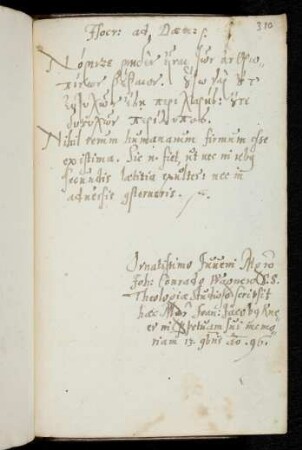 Isocr: ad Dæm: 310
Νόμιζε μηδὲν εἶναι τῶν ἀνθρω
πίνων βέβαιον. οὕτω γὰρ οὔτ
εὐτυχῶν ἔσῃ περιχαρὴς οὔτε
δυστυχῶν περίλυπος.
Nihil rerum humanarum firmum esse
existima. Sic n. fiet, ut nec in rebg
secundis lætitia exultes nec in
adversis
Ornatissimo Juveni
Joh: Conrado S.S.
Theologiæ Studioso scripsit
hæc Joan: Jacobg
in sui memo
riam 13. 9bris ao. 96.